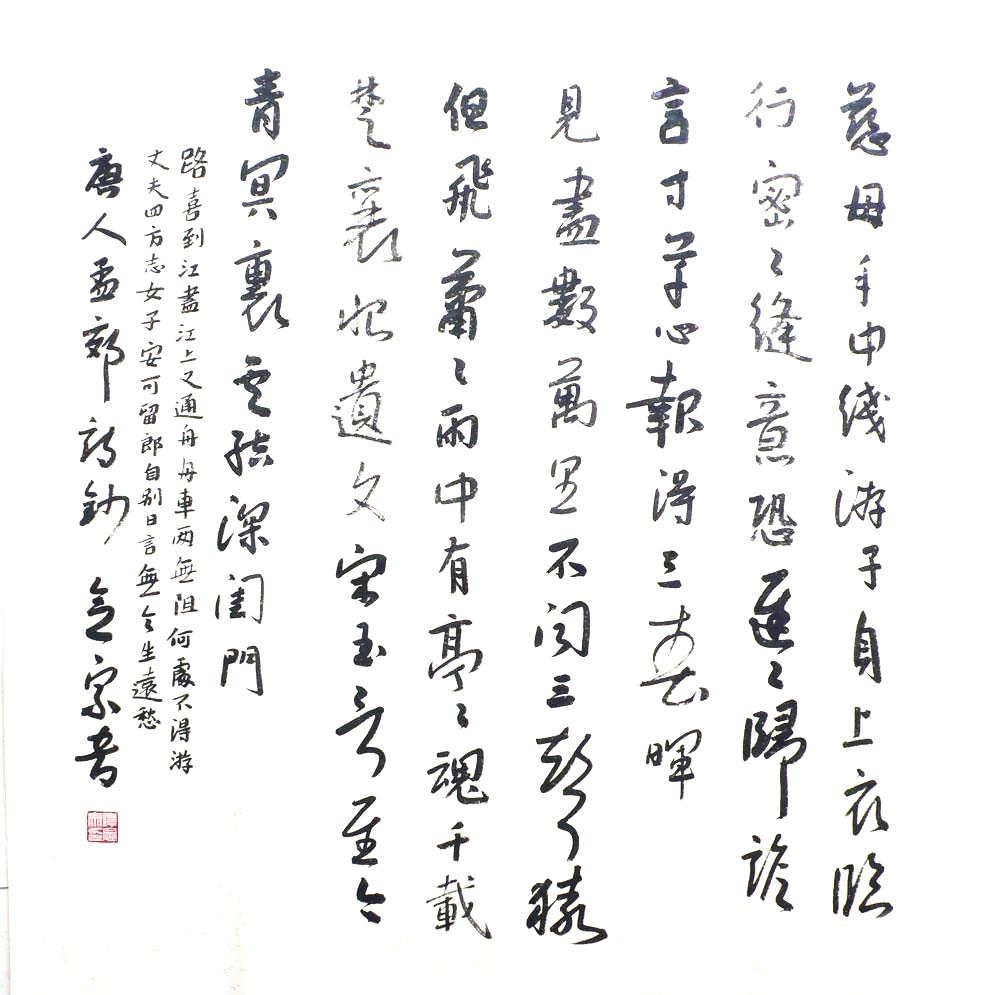 慈母手中綫游子身上衣臨
行密〻縫意恐遲〻歸誰
言寸草心報得三春暉
見盡數萬里不聞三聲猿
但飛蕭〻雨中有亭〻魂千載
楚襄恨遺文宋玉言至今
青冥裏雲結深閨門
路喜到江盡江上又通舟舟車兩無阻何處不得游
丈夫四方志女子安可留郎自别日言無令生遠愁
唐人孟郊詩鈔 宗書